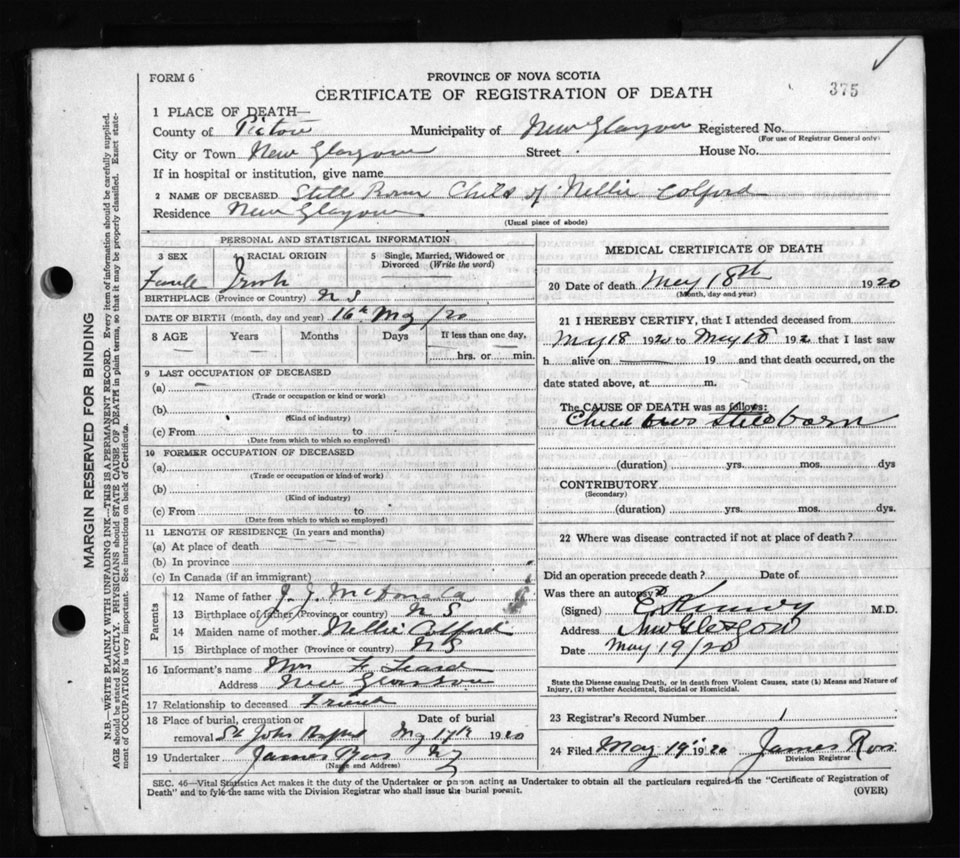 FORM 6
PROVINCE OF NOVA SCOTIA
375
CERTIFICATE OF REGISTRATION OF DEATH
1 PLACE OF DEATH—
County of Pictou Municipality of New Glasgow Registered No.
(For use of Registrar General only)
City or Town New Glasgow Street House No.
If in hospital or institution, give name
2 NAME OF DECEASED Still Born Child of Nellie Colford
Residence New Glasgow
(Usual place of abode)
PERSONAL AND STATISTICAL INFORMATION
3 SEX 4 RACIAL ORIGIN 5 Single, Married, Widowed or Divorced (Write the word)
Female Irish
BIRTHPLACE (Province or Country) N S
DATE OF BIRTH (month, day and year) 16th May /20
8 AGE Years Months Days If less than one day,
hrs. or min.
9 LAST OCCUPATION OF DECEASED
(a)
(Trade or occupation or kind or work)
(b)
(Kind of industry)
(c) From to
(Date from which to which so employed)
10 FORMER OCCUPATION OF DECEASED
(a)
(Trade or occupation or kind or work)
(b)
(Kind of industry)
(c) From to
(Date from which to which so employed)
11 LENGTH OF RESIDENCE (In years and months)
(a) At place of death
(b) In province
(c) In Canada (if an immigrant)
Parents
12 Name of father J. J. McDonald
13 Birthplace of father (Province or country) N S
14 Maiden name of mother Nellie Colford
15 Birthplace of mother (Province or country) N S
16 Informant's name
Address New Glasgow
17 Relationship to deceased Friend
18 Place of burial, cremation or removal St John Baptist Date of burial May 19th 1920
19 Undertaker James Ross
(Name and Address)
MEDICAL CERTIFICATE OF DEATH
20 Date of death May 18th 1920
(Month, day and year)
21 I HEREBY CERTIFY, that I attended deceased from
May 18 1920 to May 18 192 that I last saw
h alive on 19 and that death occurred, on the
date stated above, at m.
The CAUSE OF DEATH was as follows:
Child was still born
(duration) yrs. mos. dys
CONTRIBUTORY
(Secondary)
(duration) yrs. mos. dys.
22 Where was disease contracted if not at place of death?
Did an operation precede death? Date of
Was there an autopsy?
(Signed) E. Kennedy M.D.
Address New Glasgow
Date May 19/20
State the Disease causing Death, or in death from Violent Causes, state (1) Means and Nature of
Injury, (2) whether Accidental, Suicidal or Homicidal.
23 Registrar's Record Number 1
24 Filed May 19th 1920 James Ross
Division Registrar
SEC. 46—Vital Statistics Act makes it the duty of the Undertaker or person acting as Undertaker to obtain all the particulars required in the "Certificate of Registration of
Death" and to fyle the same with the Division Registrar who shall issue the burial permit.
(OVER)
MARGIN RESERVED FOR BINDING
N.B.—WRITE PLAINLY WITH UNFADING INK—THIS IS A PERMANENT RECORD. Every item of information should be carefully supplied.
AGE should be stated EXACTLY. PHYSICIANS should STATE CAUSE OF DEATH in plain terms, so that it may be properly classified. Exact state-
ment of OCCUPATION is very important. See instructions on back of Certificate.